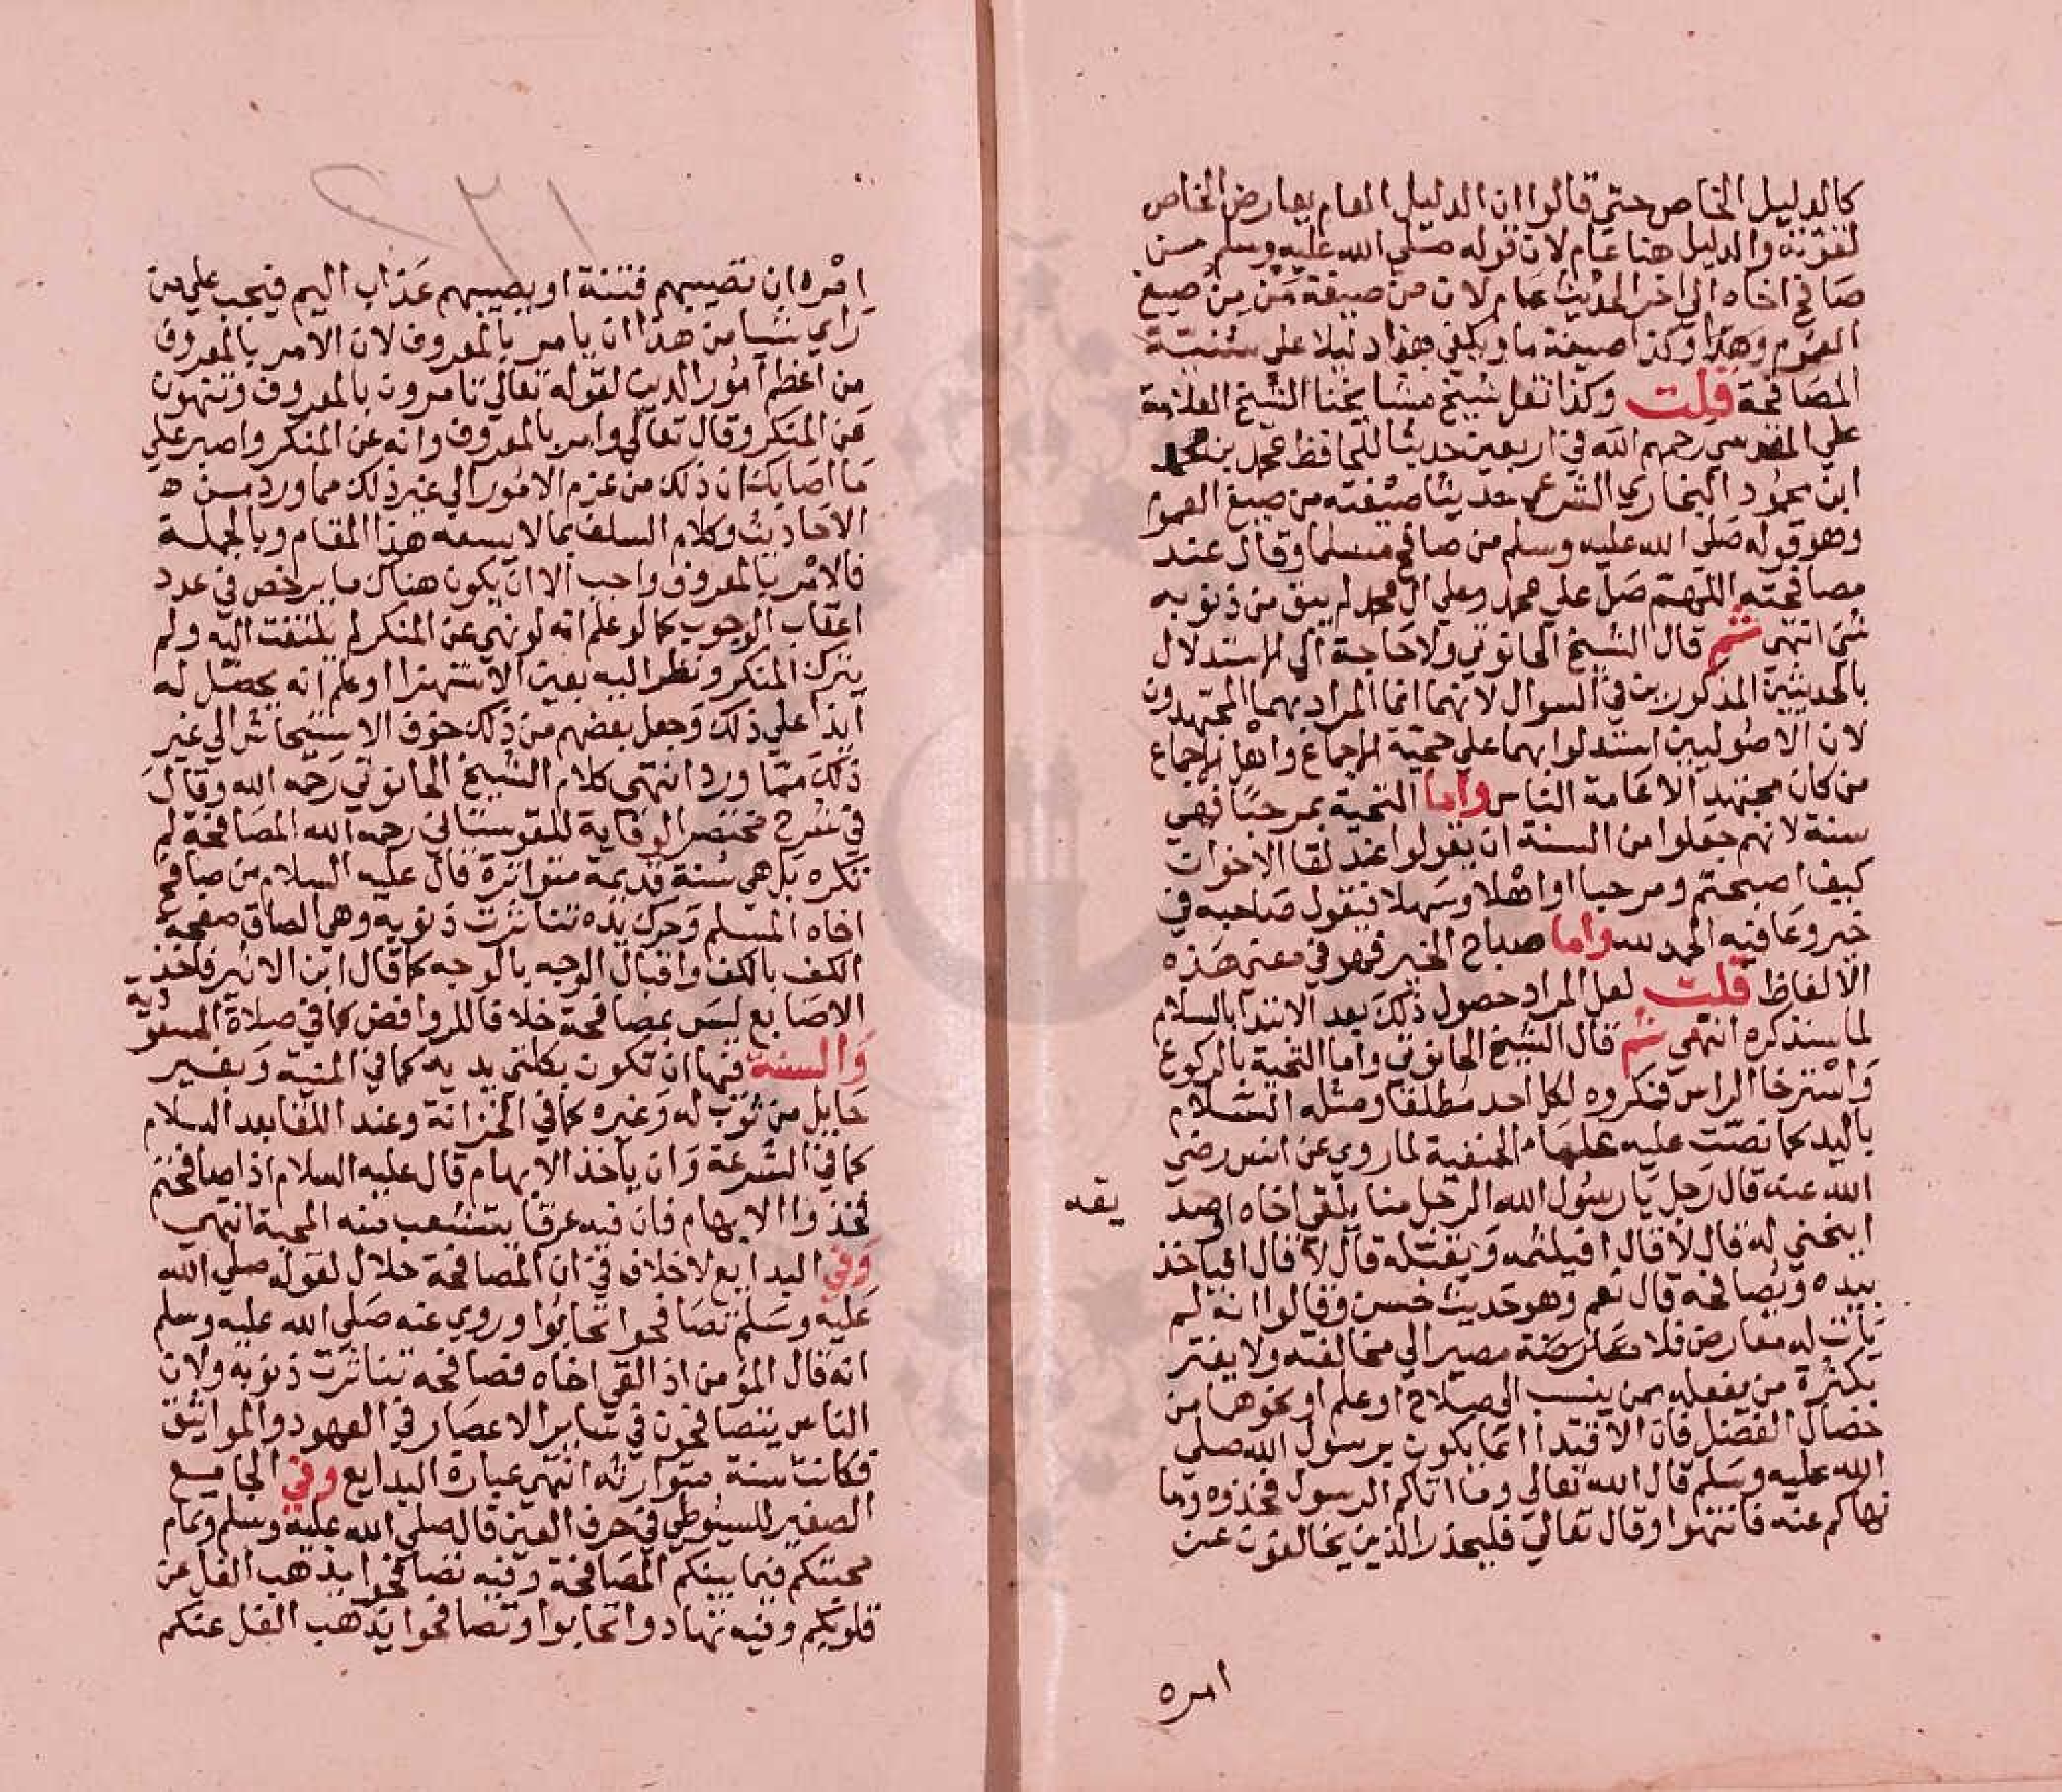 كالدليل الخاص حتى قالوا ان الدليل العام يعارض الخاص
لقوته والدليل هنا عام لان قوله صلي الله عليه وسلم من
صافح اخاه الي اخر الحديث عام لان من صيغة من من صيغ
العموم وهذا وكذا صيغة ما ويكفي هذا دليلا علي سنية
المصافحة قلت وكذا نقل شيخ مشايخنا الشيخ العلامة
علي المقدسي رحمهم الله في اربعين حديثا للحافظ محمد بن محمد
ابن محمود البخاري الشرعي حديثا صيغته من صيغ العموم
وهو قوله صلي الله عليه وسلم من صافح مسلما وقال عند
مصافحته اللهم صل علي محمد وعلي ال محمد لم يبق من ذنوبه
شي انتهي ثم قال الشيخ الحانوتي ولا حاجة الي الاستدلال
بالحديثين المذكورين في السوال لانهما انما المراد بهما المجتهدون
لان الاصوليين استدلوا بهما علي حجية الاجماع واهل الاجماع
من كان مجتهدا لا عامة الناس واما التحية بمرحبا فهي
سنة لانهم جعلوا من السنة ان يقولوا عند لقا الاخوان
كيف اصبحتم ومرحبا واهلا وسهلا فيقول صاحبه في
خير وعافيه الحمد لله واما صباح الخير فهو في معني هذه
الالفاظ قلت لعل المراد حصول ذلك بعد الابتدا بالسلام
لما سنذكره انتهي ثم قال الشيخ الحانوتي واما التحية بالركوع
واسترخا الراس فمكروه لكل احد مطلقا ومثله السلام
باليد كما نصت عليه علماء الحنفية لما روي عن انس رضي
الله عنه قال رجل يا رسول الله الرجل منا يلقي اخاه او صد
يقه
اينحني له قال لا قال افيلثمه ويقبله قال لا قال افياخذ
بيده ويصافحه قال نعم وهو حديث حسن وقالوا انه لم
يات له معارض فلا معارضة مصيرا الي مخالفته ولا يغتر
بكثرة من يفعله ممن ينسب الي صلاح او علم او نحوها من
خصال الفضل فان الاقتدا انما يكون برسول الله صلي
الله عليه وسلم قال الله تعالي وما اتاكم الرسول فخذوه وما
نهاكم عنه فانتهوا وقال تعالي فليحذر الذين يخالفون عن
امره
١٢٦
امره ان تصيبهم فتنة او يصيبهم عذاب اليم فيجب علي من
راي شيا من هذا ان يامر بالمعروف لان الامر بالمعروف
من اعظم امور الدين لقوله تعالي تامرون بالمعروف وتنهون
عن المنكر وقال تعالي وامر بالمعروف وانه عن المنكر واصبر علي
ما اصابك ان ذلك من عزم الامور الي غير ذلك مما ورد من ه
الاحاديث وكلام السلف بما لا يسعه هذا المقام وبالجملة
فالامر بالمعروف واجب الا ان يكون هناك ما يرخص في عدد
اعقاب الوجوب كما لو علم انه لو نهي عن المنكر لم يلتفت اليه ولم
يترك المنكر ونظر اليه بعين الاستهزا او علم انه يحصل له
ايذا علي ذلك وجعل بعضهم من ذلك خوف الاستيحاش الي غير
ذلك مما ورد انتهي كلام الشيخ الحانوتي رحمه الله وقال
في شرح مختصر الوقاية للقوستاني رحمه الله المصافحة لم
تكره بل هي سنة قديمة متواترة قال عليه السلام من صافح
اخاه المسلم وحرك يده تناثرت ذنوبه وهي الصاق صفحة
الكف بالكف واقبال الوجه بالوجه كما قال ابن الاثير فاخذ
الاصابع ليس بمصافحة خلافا للروافض كما في صلاة المسعو
دية
والسنة فيها ان تكون بكلتي يديه كما في المنية وبغير
حايل من ثوب له وغيره كما في الخزانة وعند اللقا بعد السلام
كما في الشرعة وان ياخذ الابهام قال عليه السلام اذا صافحتم
فخذوا الابهام فان فيه عرقا يتشعب منه المحبة انتهي
وفي البدايع لا خلاف في ان المصافحة حلال لقوله صلي الله
عليه وسلم تصافحوا تحابوا وروي عنه صلي الله عليه وسلم
انه قال المؤمن اذا لقي اخاه فصافحه تناثرت ذنوبه ولان
الناس يتصافحون في ساير الاعصار في العهود والمواثيق
فكانت سنة متوارثه انتهي عبارة البدايع وفي الجامع
الصغير للسيوطي في حرف العين قال صلي الله عليه وسلم وتمام
محبتكم فيما بينكم المصافحة وفيه تصافحوا يذهب الغل عن
قلوبكم وفيه تهادوا تحابوا وتصافحوا يذهب الغل عنكم